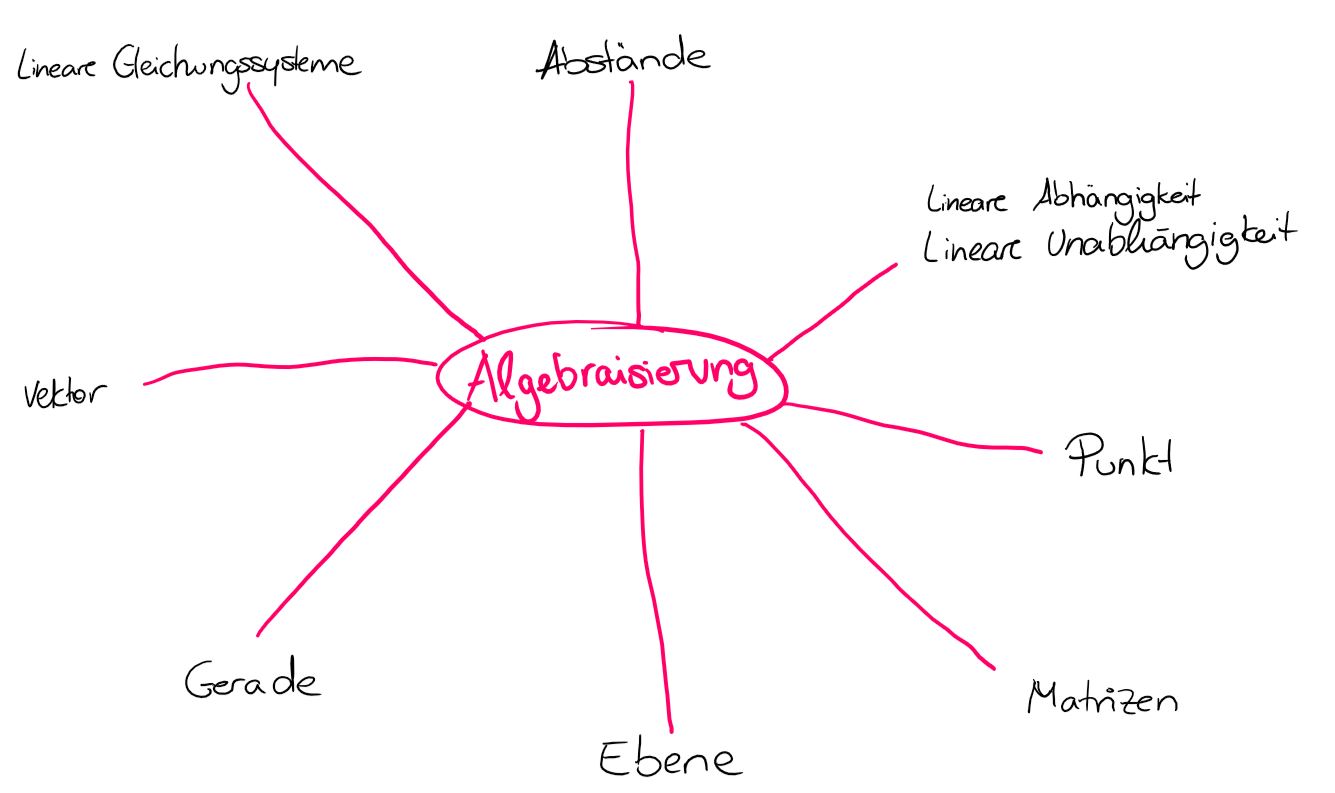 Lineare Gleichungssysteme
Abstände
Lineare Abhängigkeit
Lineare Unabhängigkeit
Algebraisierung
Vektor
Punkt
Gerade
Matrizen
Ebene